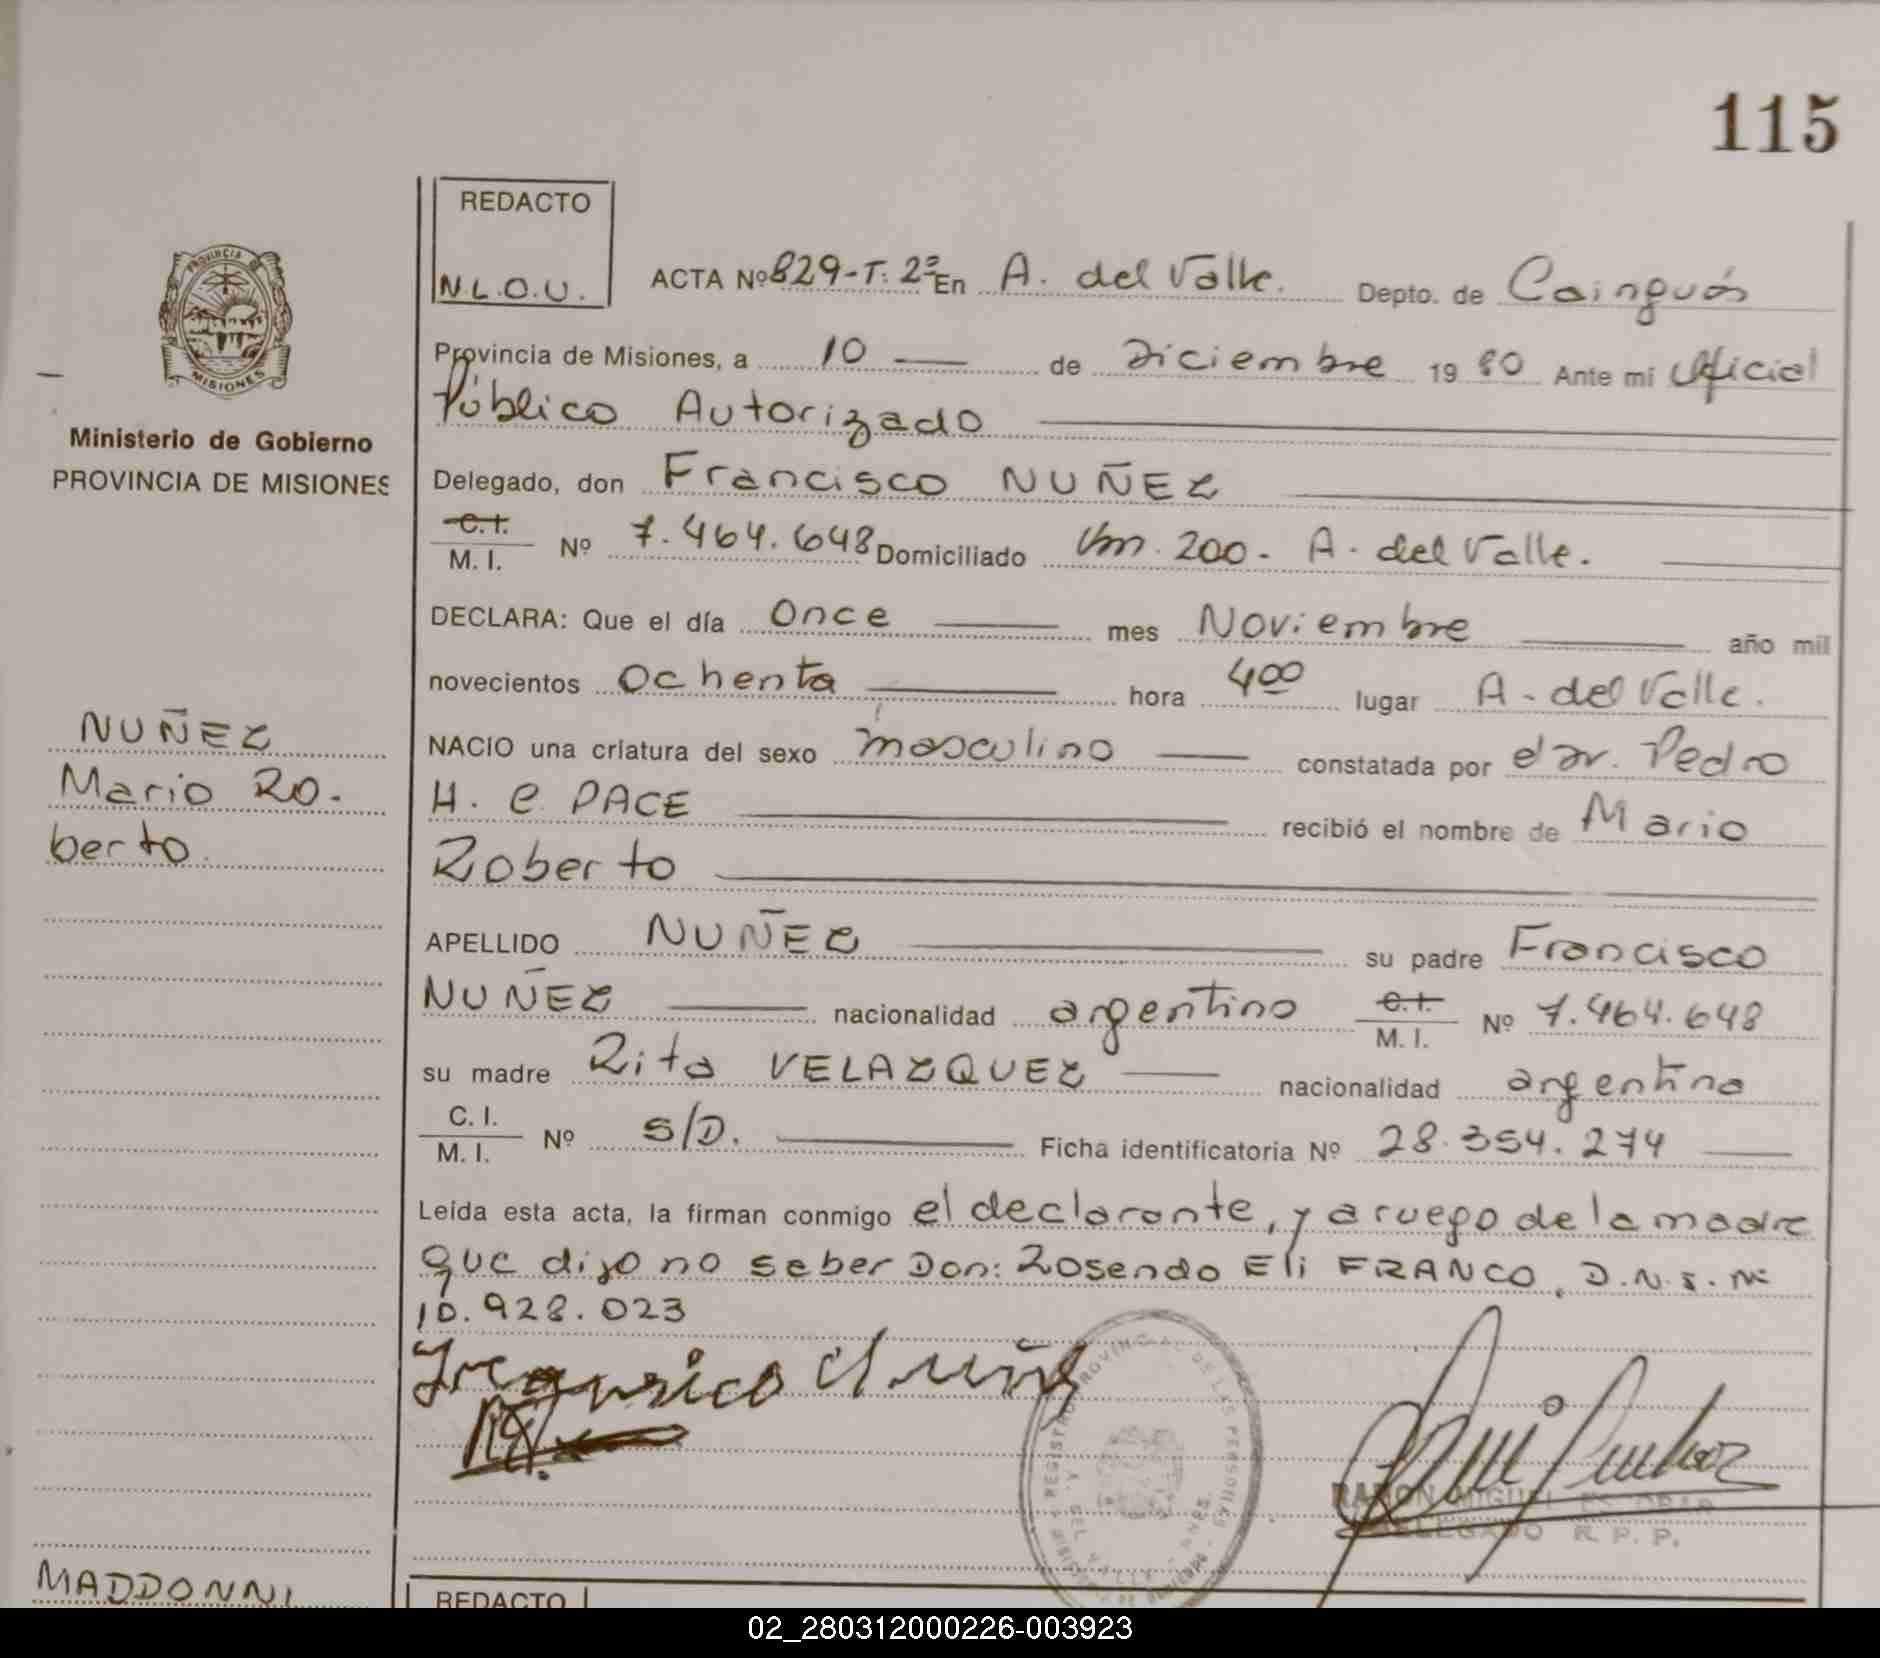 115
REDACTO
N.L.O.U.
ACTA Nº 829-T: 2º En A. del Valle. Depto. de Cainguás
Provincia de Misiones, a 10 de Diciembre 1980 Ante mí Oficial
Público Autorizado
PROVINCIA DE
MISIONES
Ministerio de Gobierno
PROVINCIA DE MISIONES
Delegado, don Francisco NUÑEZ
C.I.
M. I. Nº 7.464.648 Domiciliado Km. 200- A. del Valle.
DECLARA: Que el día Once mes Noviembre año mil
novecientos Ochenta hora 400 lugar A- del Valle.
NUÑEZ
Mario Ro-
berto.
NACIO una criatura del sexo masculino constatada por el Dr. Pedro
H. C PACE recibió el nombre de Mario
Roberto
APELLIDO NUÑEZ su padre Francisco
NUÑEZ nacionalidad argentino C.I.
M. I. Nº 7.464.648
su madre Rita VELAZQUEZ nacionalidad argentina
C. I.
M. I. Nº S/D. Ficha identificatoria Nº 28.354.274
Leída esta acta, la firman conmigo el declarante, y a ruego de la madre
que dijo no saber Don: Rosendo Eli FRANCO, D.N.I. Nº
10.928.023
REGISTRO PROVINCIAL DE LAS PERSONAS
RAMON MIGUEL ESCOBAR
DELEGADO R. P. P.
MADDONNI
REDACTO
02_280312000226-003923